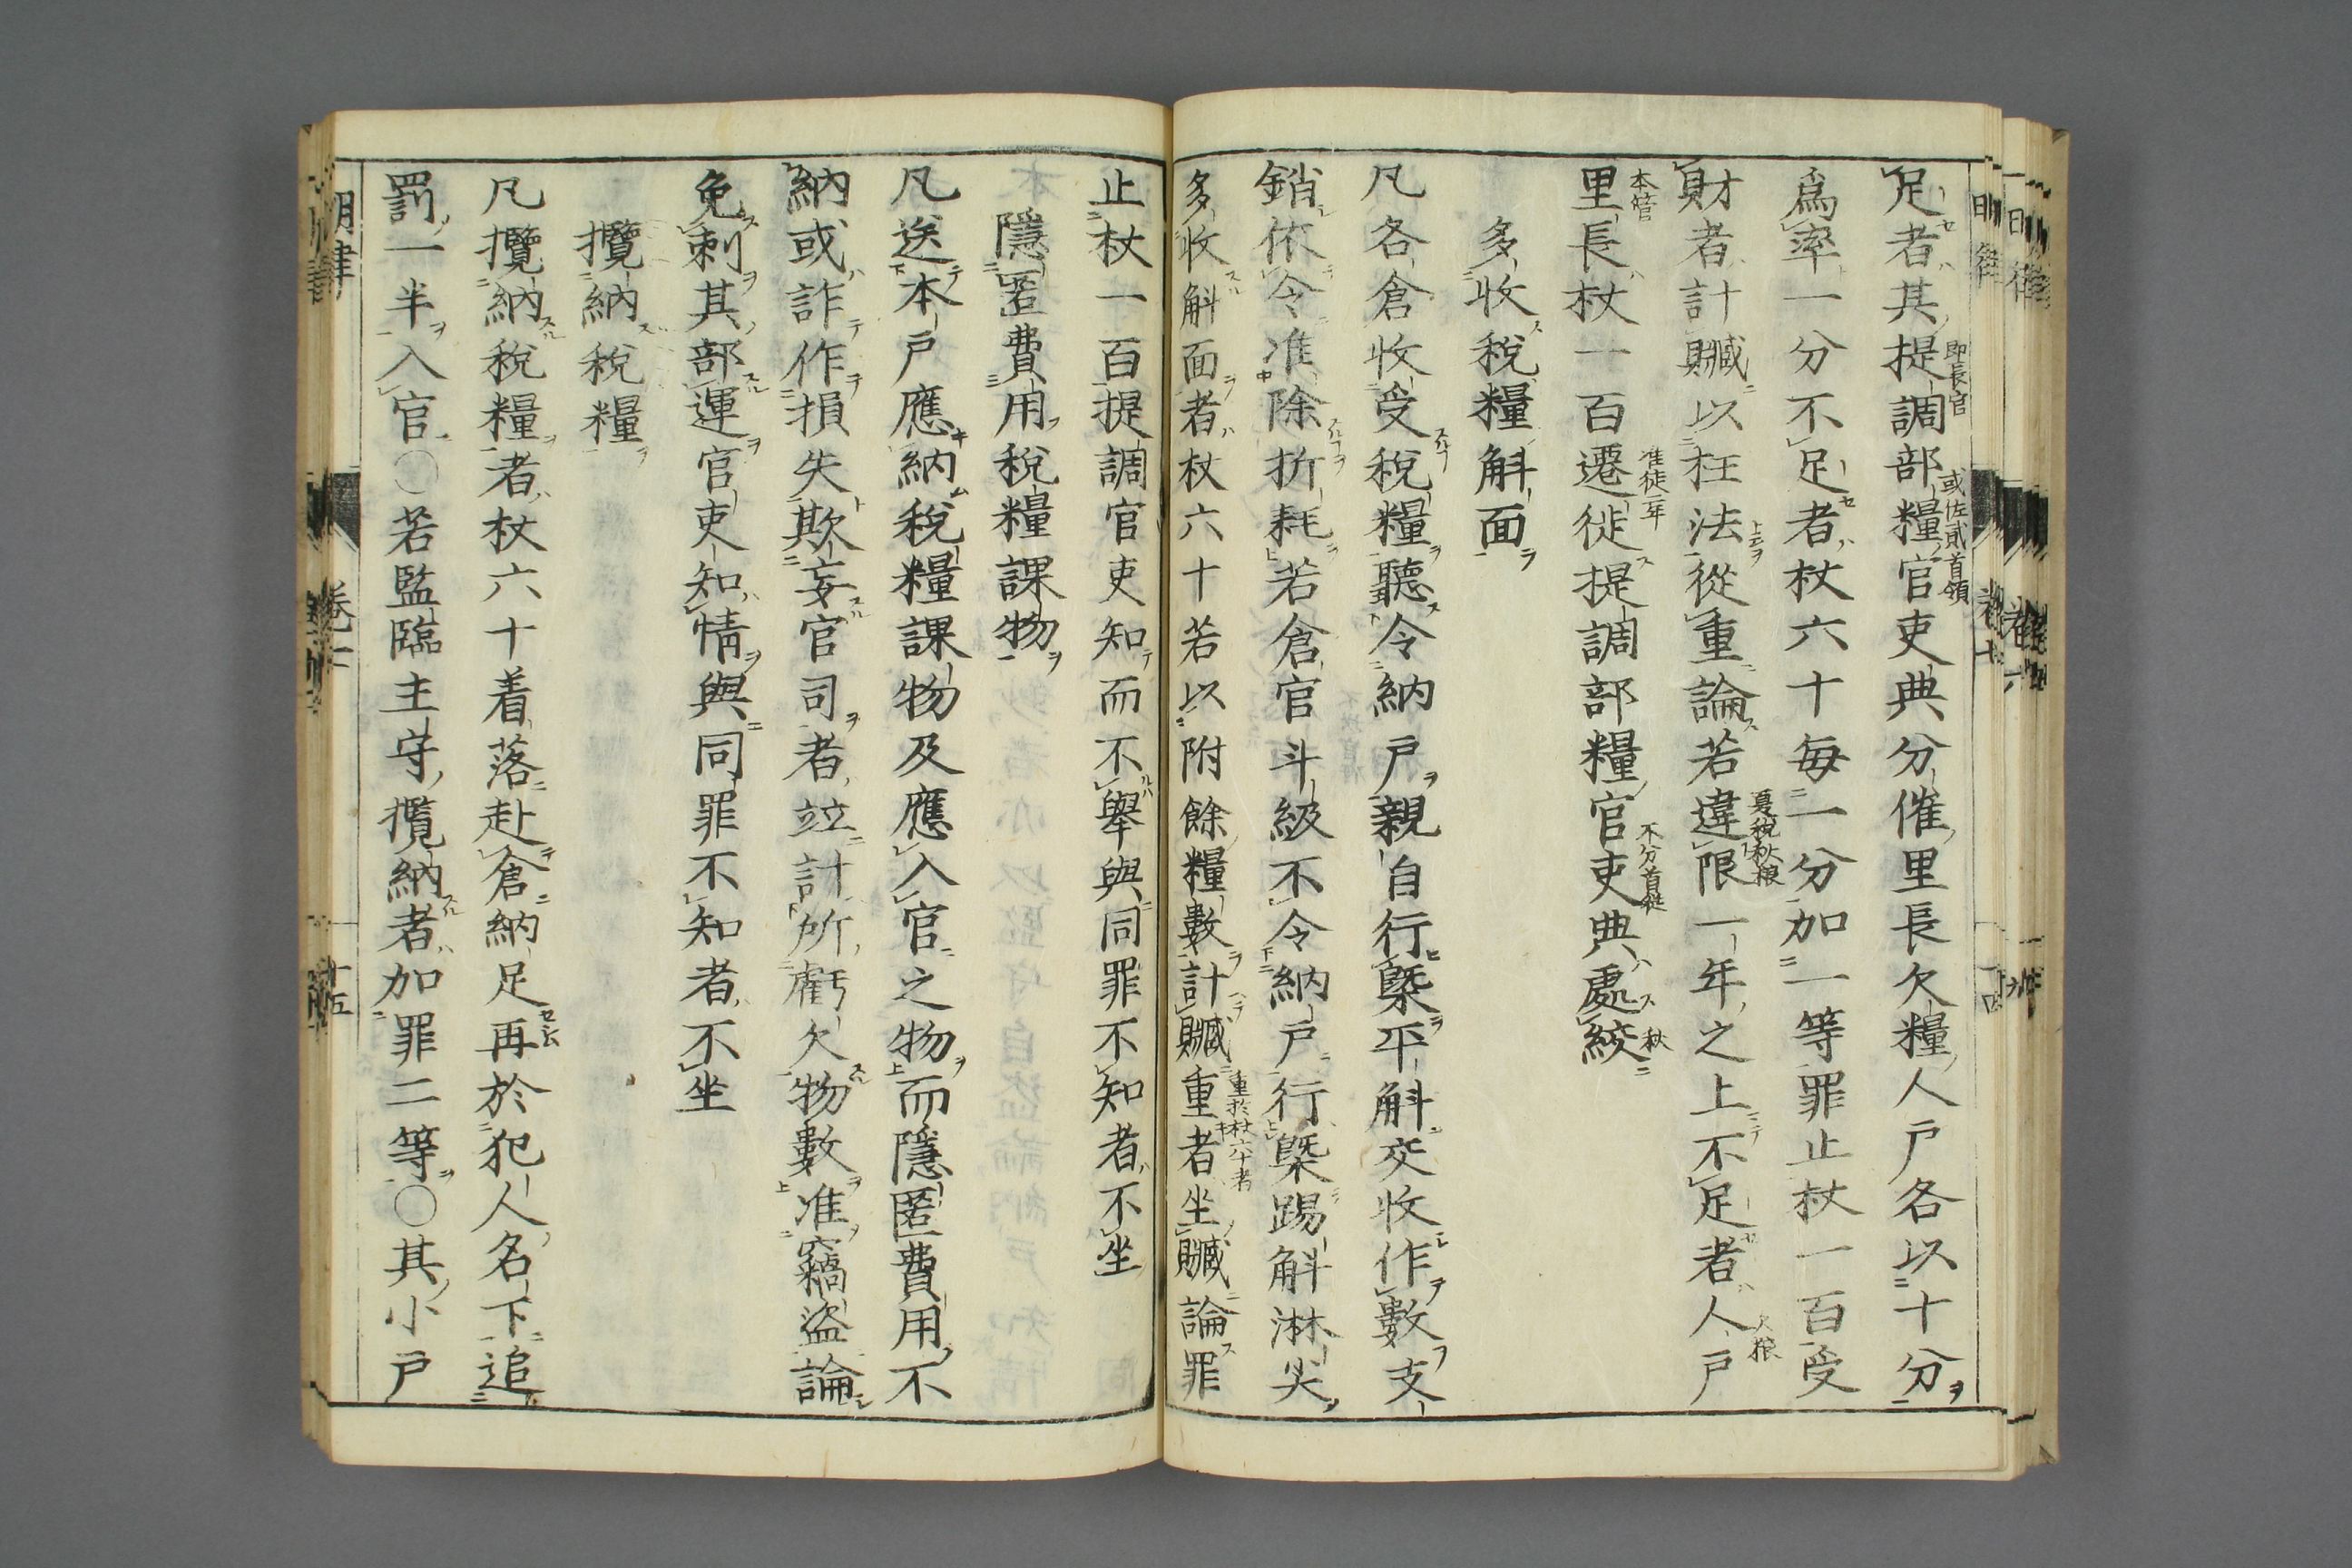 足者其提調部糧官吏典分催里長欠糧人戸各以十分
即長官
或佐貳首領
爲率一分不足者杖六十毎一分加一等罪止杖一百受
財者計贓以枉法從重論若違限一年之上不足者人戸
夏税秋粮
欠粮
里長杖一百遷徙提調部糧官吏典處絞
本管
准徒二年
不分首従
秋
多收税糧斛面
凡各倉收受税糧聽令納戸親自行槩平斛交收作數支
銷依令准除折耗若倉官斗級不令納戸行槩踢斛淋尖
多收斛面者杖六十若以附餘糧數計贓重者坐贓論罪
重於杖六十者
止杖一百提調官吏知而不舉與同罪不知者不坐
隱匿費用税糧課物
凡送本戸應納税糧課物及應入官之物而隱匿費用不
納或詐作損失欺妄官司者竝計所虧欠物數准竊盜論
免刺其部運官吏知情與同罪不知者不坐
攬納税糧
凡攬納税糧者杖六十着落赴倉納足再於犯人名下追
罰一半入官○若監臨主守攬納者加罪二等○其小戸